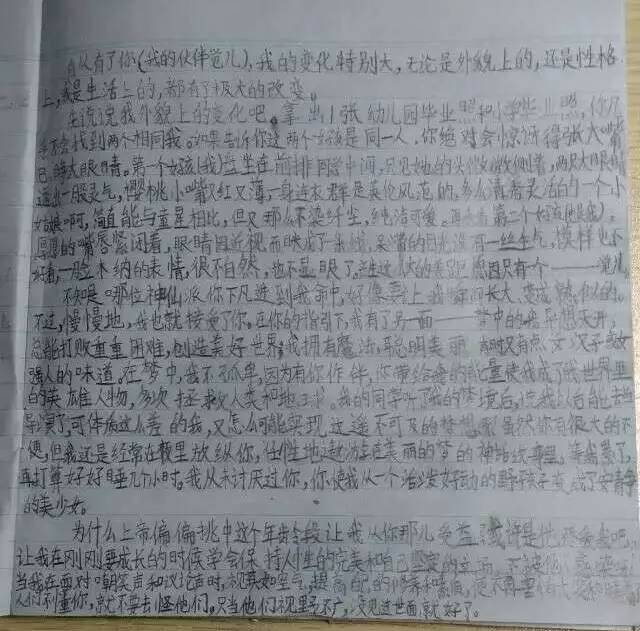 自从有了你(我的伙伴觉儿),我的变化特别大,无论是外貌上的,还是性格
上,或是生活上的,都有了极大的改变。
先说说我外貌上的变化吧。拿出1张幼儿园毕业照和小学毕业照,你
会找到两个相同我。如果告诉你这两个女孩是同一人,你绝对会惊讶得张大嘴
巴瞪大眼睛。第一个女孩(我)盘坐在前排同学中间,只见她的头微微侧着,两只大眼睛
透出一股灵气,樱桃小嘴又红又薄,一身连衣群是英伦风范的,多么清秀灵活的一个小
姑娘啊,简直能与童星相比,但又那么不染纤尘,纯洁可爱。再来看第二个女孩
厚厚的嘴唇紧闭着,眼睛因近视而眯成了一条线,呆滞的目光没有一丝生气,模样也不
好看,一脸木纳的表情,很不自然,也不显眼了。原因只有个——觉儿
不知是哪位神仙派你下凡进到我命中,好像要让我瞬间长大、变成熟似的。
不过,慢慢地,我也就接受了你。在你的指引下,我有了另一面——梦中的我异想天开,
总能打败重重困难,创造美好世界,我拥有魔法,聪明美丽,有时又有点女汉子
强人的味道。在梦中,我不孤单,因为有你作伴,你带给我的能量使我成了世界里
的英雄人物,多次拯救人类和地球。我的同学听了我的梦境后,
导演了,可体质这么差的我,又怎么可能实现这遥不可及的梦想 虽然你有很大的不
便,但我还是经常在教里放纵你,任性地遨游在美丽的梦的神话故事里。
再打算好好睡几个小时。我从未讨厌过你,你使我从一个活泼好动的野孩子变成了安静
的美少女。
为什么上帝偏偏挑中这个年龄段让我从你那儿受益
让我在刚刚要成长的时候学会保持人生的完美和自己坚定的立场,
当我在面对嘲笑声和议论声时,视其如空气,提高自己的修养和素质,
人们不懂你,就不要去怪他们,只当他们视野不广,没见过世面就好了。